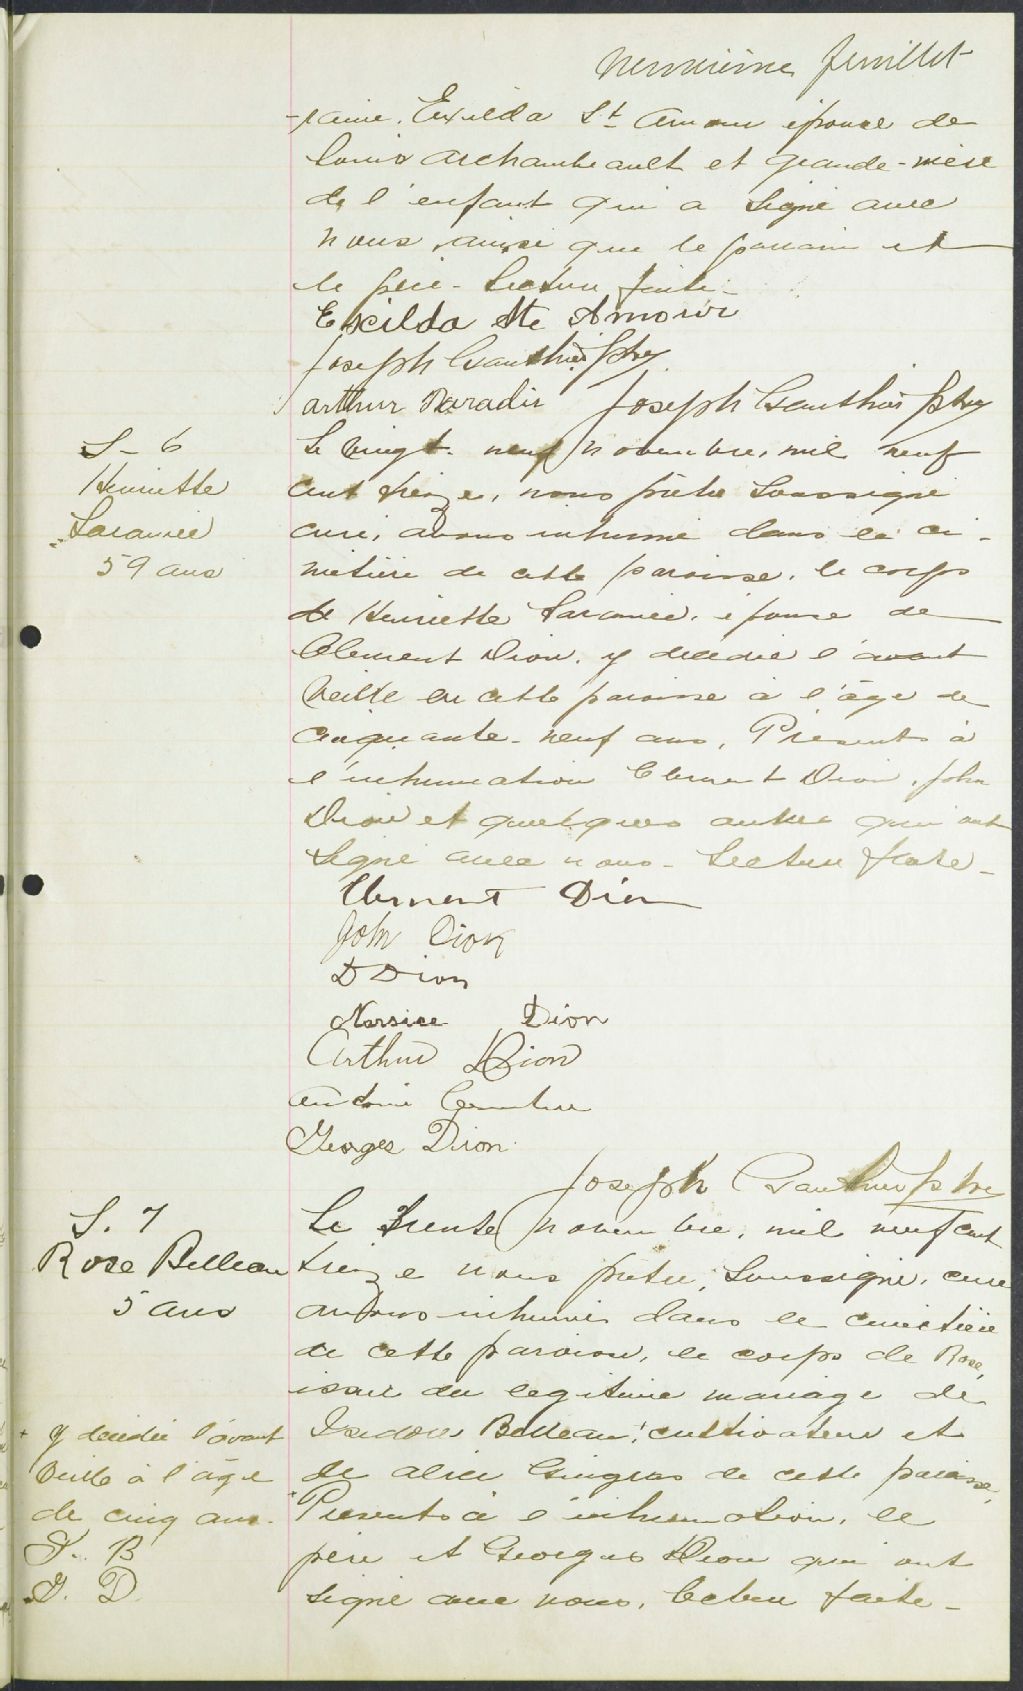 neuvième feuillet
-raine, Exilda St Amour épouse de
Louis Archambeault et grande-mère
de l'enfant qui a signé avec
nous, ainsi que le parrain et
le père. Lecture faite.
Exilda Ste Amour
Joseph Gauthier ptre
arthur Paradis Joseph Gauthier ptre
S-6
Henriette
Laramée
59 ans
Le vingt-neuf novembre, mil neuf
cent treize, nous prêtre soussigné
curé, avons inhumé dans le ci-
metière de cette paroisse, le corps
de Henriette Laramée, épouse de
Clement Dion, y décédée l'avant
veille en cette paroisse à l'âge de
cinquante-neuf ans, Présents à
l'inhumation Clement Dion, John
Dion et quelques autres qui ont
signé avec nous. Lecture faite-
Clement Dion
John Dion
D Dion
Narsice Dion
Arthur Dion
Georges Dion
Joseph Gauthier ptre
S. 7
Rose Belleau
5 ans
Le trente novembre, mil neuf cent
treize nous prêtre, soussigné, curé
avons inhumé dans le cimetière
de cette paroisse, le corps de Rose,
issue du legitime mariage de
Isidore Belleau, cultivateur et
de alice Gingras de cette paroisse,
+ y décédée l'avant
veille à l'âge
de cinq ans.
I. B
G. D.
Presents à l'inhumation, le
père et Georges Dion qui ont
signé avec nous, Lecture faite-